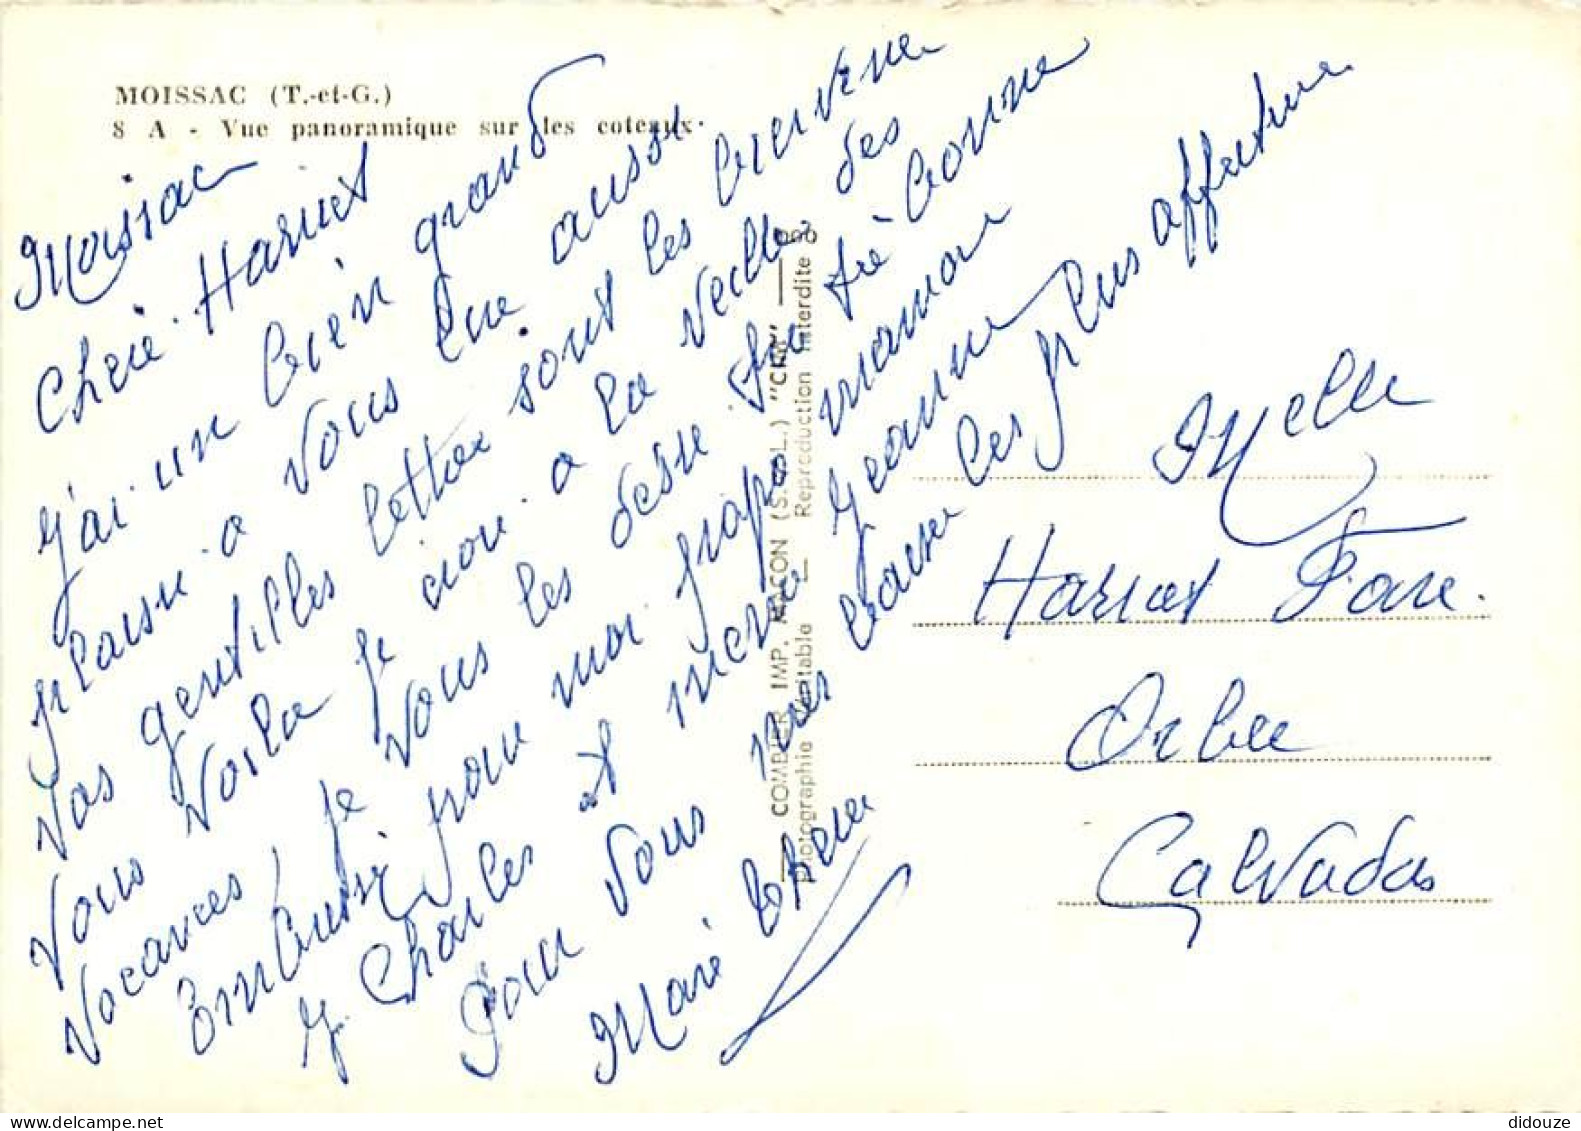 MOISSAC (T.-et-G.)
8 A - Vue panoramique sur les coteaux.
Moissac
Cherie Harriet
j'ai un bien grand
plaisir a vous lire aussi.
Vos gentilles lettre sont les bienvenue
Vous voila je croi a la veille des
vacances je vous les désire très bonne
Embrassé pour moi papa maman
Charles et même Jeanne
Pour vous mes baiser les plus affectueux
Marie Thérèse
— COMBIER IMP. MACON (S.-&-L.) "CIM" —
Photographie véritable — Reproduction interdite
Melle
Harriet Fare.
Orbec
Calvados
didouze
delcampe.net